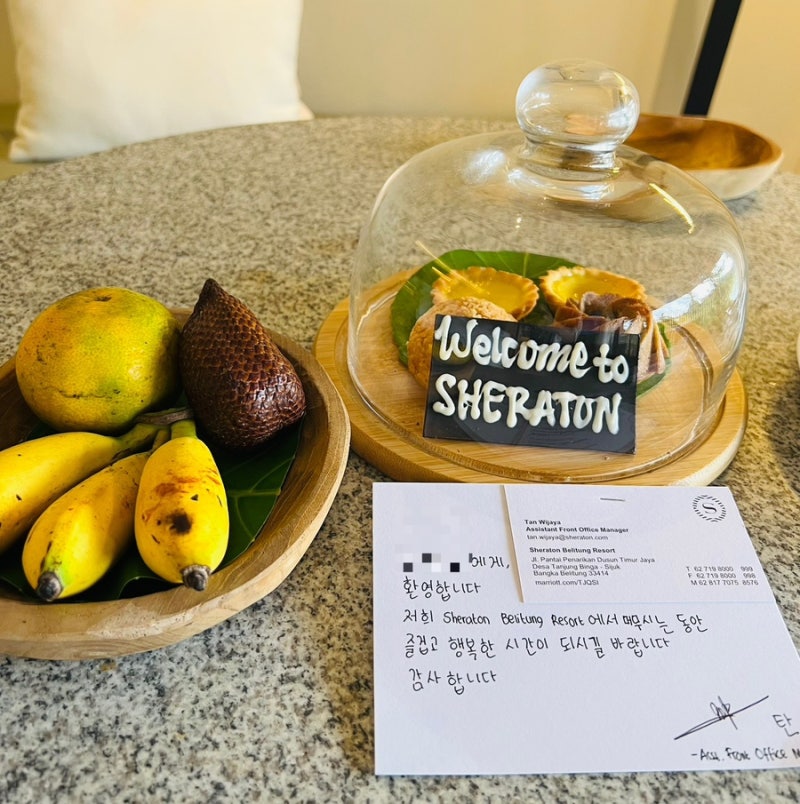 Welcome to
SHERATON
S
Tan Wijaya
Assistant Front Office Manager
tan.wijaya@sheraton.com
Sheraton Belitung Resort
Jl. Pantai Penarikan Dusun Timur Jaya
Desa Tanjung Binga - Sijuk
Bangka Belitung 33414
marriott.com/TJQSI
T 62 719 8000 999
F 62 719 8000 998
M 62 817 7075 8576
에게,
환영합니다
저희 Sheraton Belitung Resort 에서 머무시는 동안
즐겁고 행복한 시간이 되시길 바랍니다
감사합니다
탄
- Asst. Front Office M